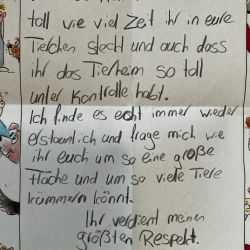 toll wie viel Zeit ihr in eure
Tierchen steckt und auch dass
ihr das Tierheim so toll
unter Kontrolle habt.
Ich finde es echt immer wieder
erstaunlich und frage mich wie
ihr euch um so eine große
Fläche und um so viele Tiere
kümmern könnt.
Ihr verdient meinen
größten Respekt.